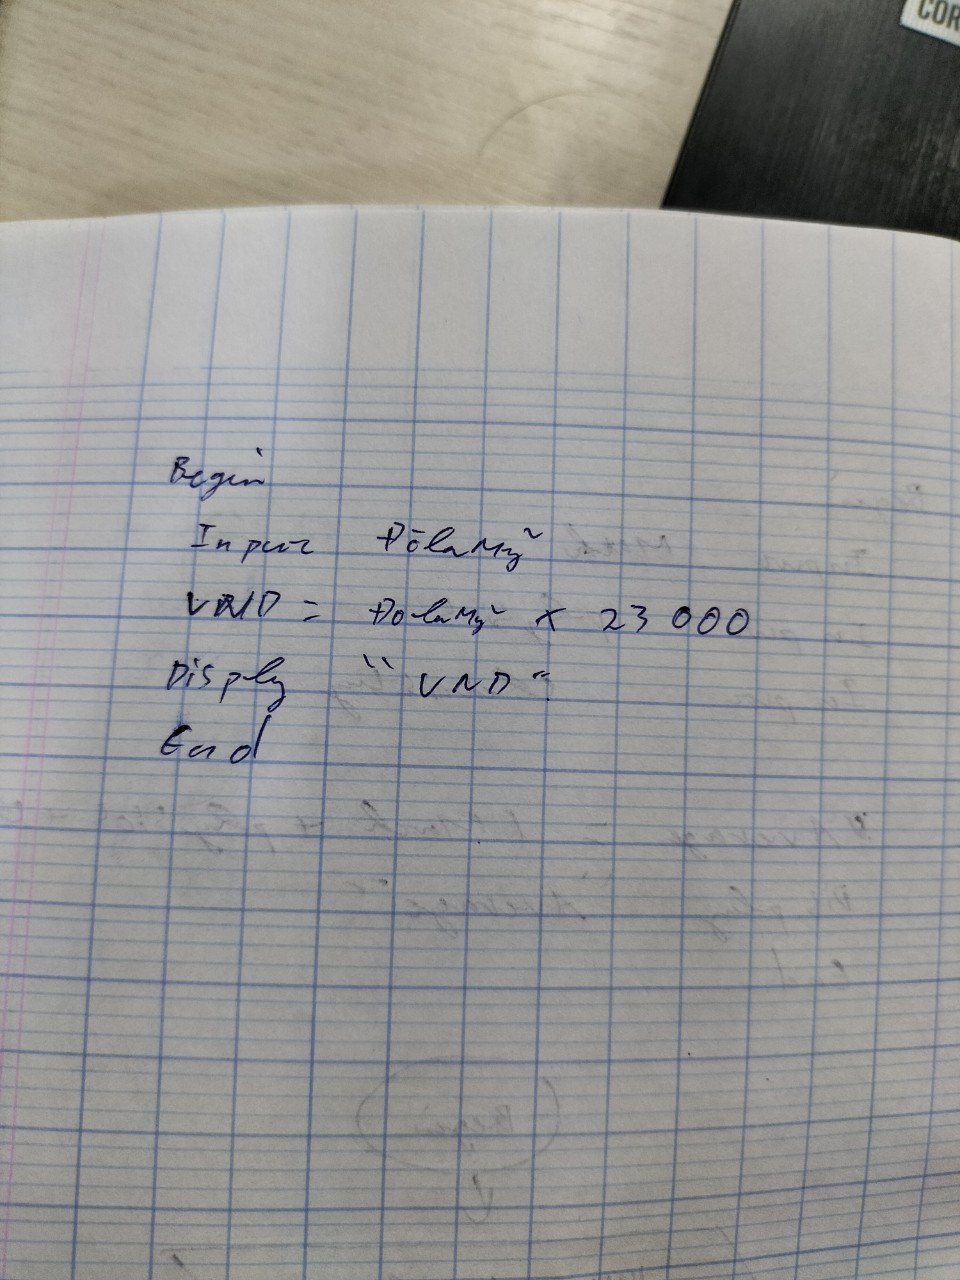 COR
Begin
Input ĐôlaMỹ
VND = ĐolaMỹ x 23 000
Display "VND"
End